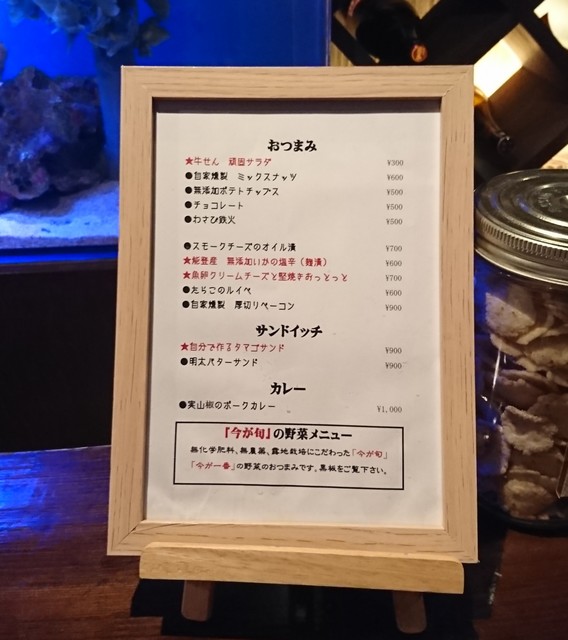 おつまみ
★牛せん 頑固サラダ ¥300
●自家燻製 ミックスナッツ ¥600
●無添加ポテトチップス ¥500
●チョコレート ¥500
●わさび鉄火 ¥500
●スモークチーズのオイル漬 ¥700
★能登産 無添加いかの塩辛(麹漬) ¥600
★魚卵クリームチーズと堅焼きおっとっと ¥700
●たらこのルイベ ¥600
●自家燻製 厚切りベーコン ¥900
サンドイッチ
★自分で作るタマゴサンド ¥900
●明太バターサンド ¥900
カレー
●実山椒のポークカレー ¥1,000
『今が旬』の野菜メニュー
無化学肥料、無農薬、露地栽培にこだわった「今が旬」
「今が一番」の野菜のおつまみです。黒板をご覧下さい。